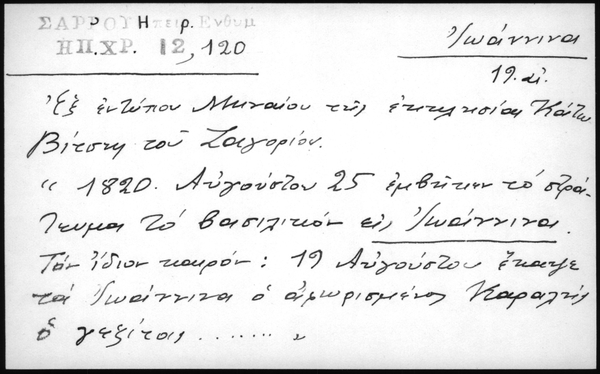 ΣΑΡΡΟΥ Ηπειρ. Ενθυμ
ΗΠ.ΧΡ. 12, 120
Ἰωάννινα
19. αἰ.
Ἐξ ἐντύπου Μηναίου τῆς ἐκκλησίας Κάτω
Βίτσης τοῦ Ζαγορίου.
"1820. Αὐγούστου 25 ἐμβῆκεν τό στρά-
τευμα τό βασιλικόν εἰς Ἰωάννινα.
Τόν ἴδιον καιρόν: 19 Αὐγούστου ἔκαψε
τά Ἰωάννινα ὁ ἀφωρισμένος
ὁ ........ "